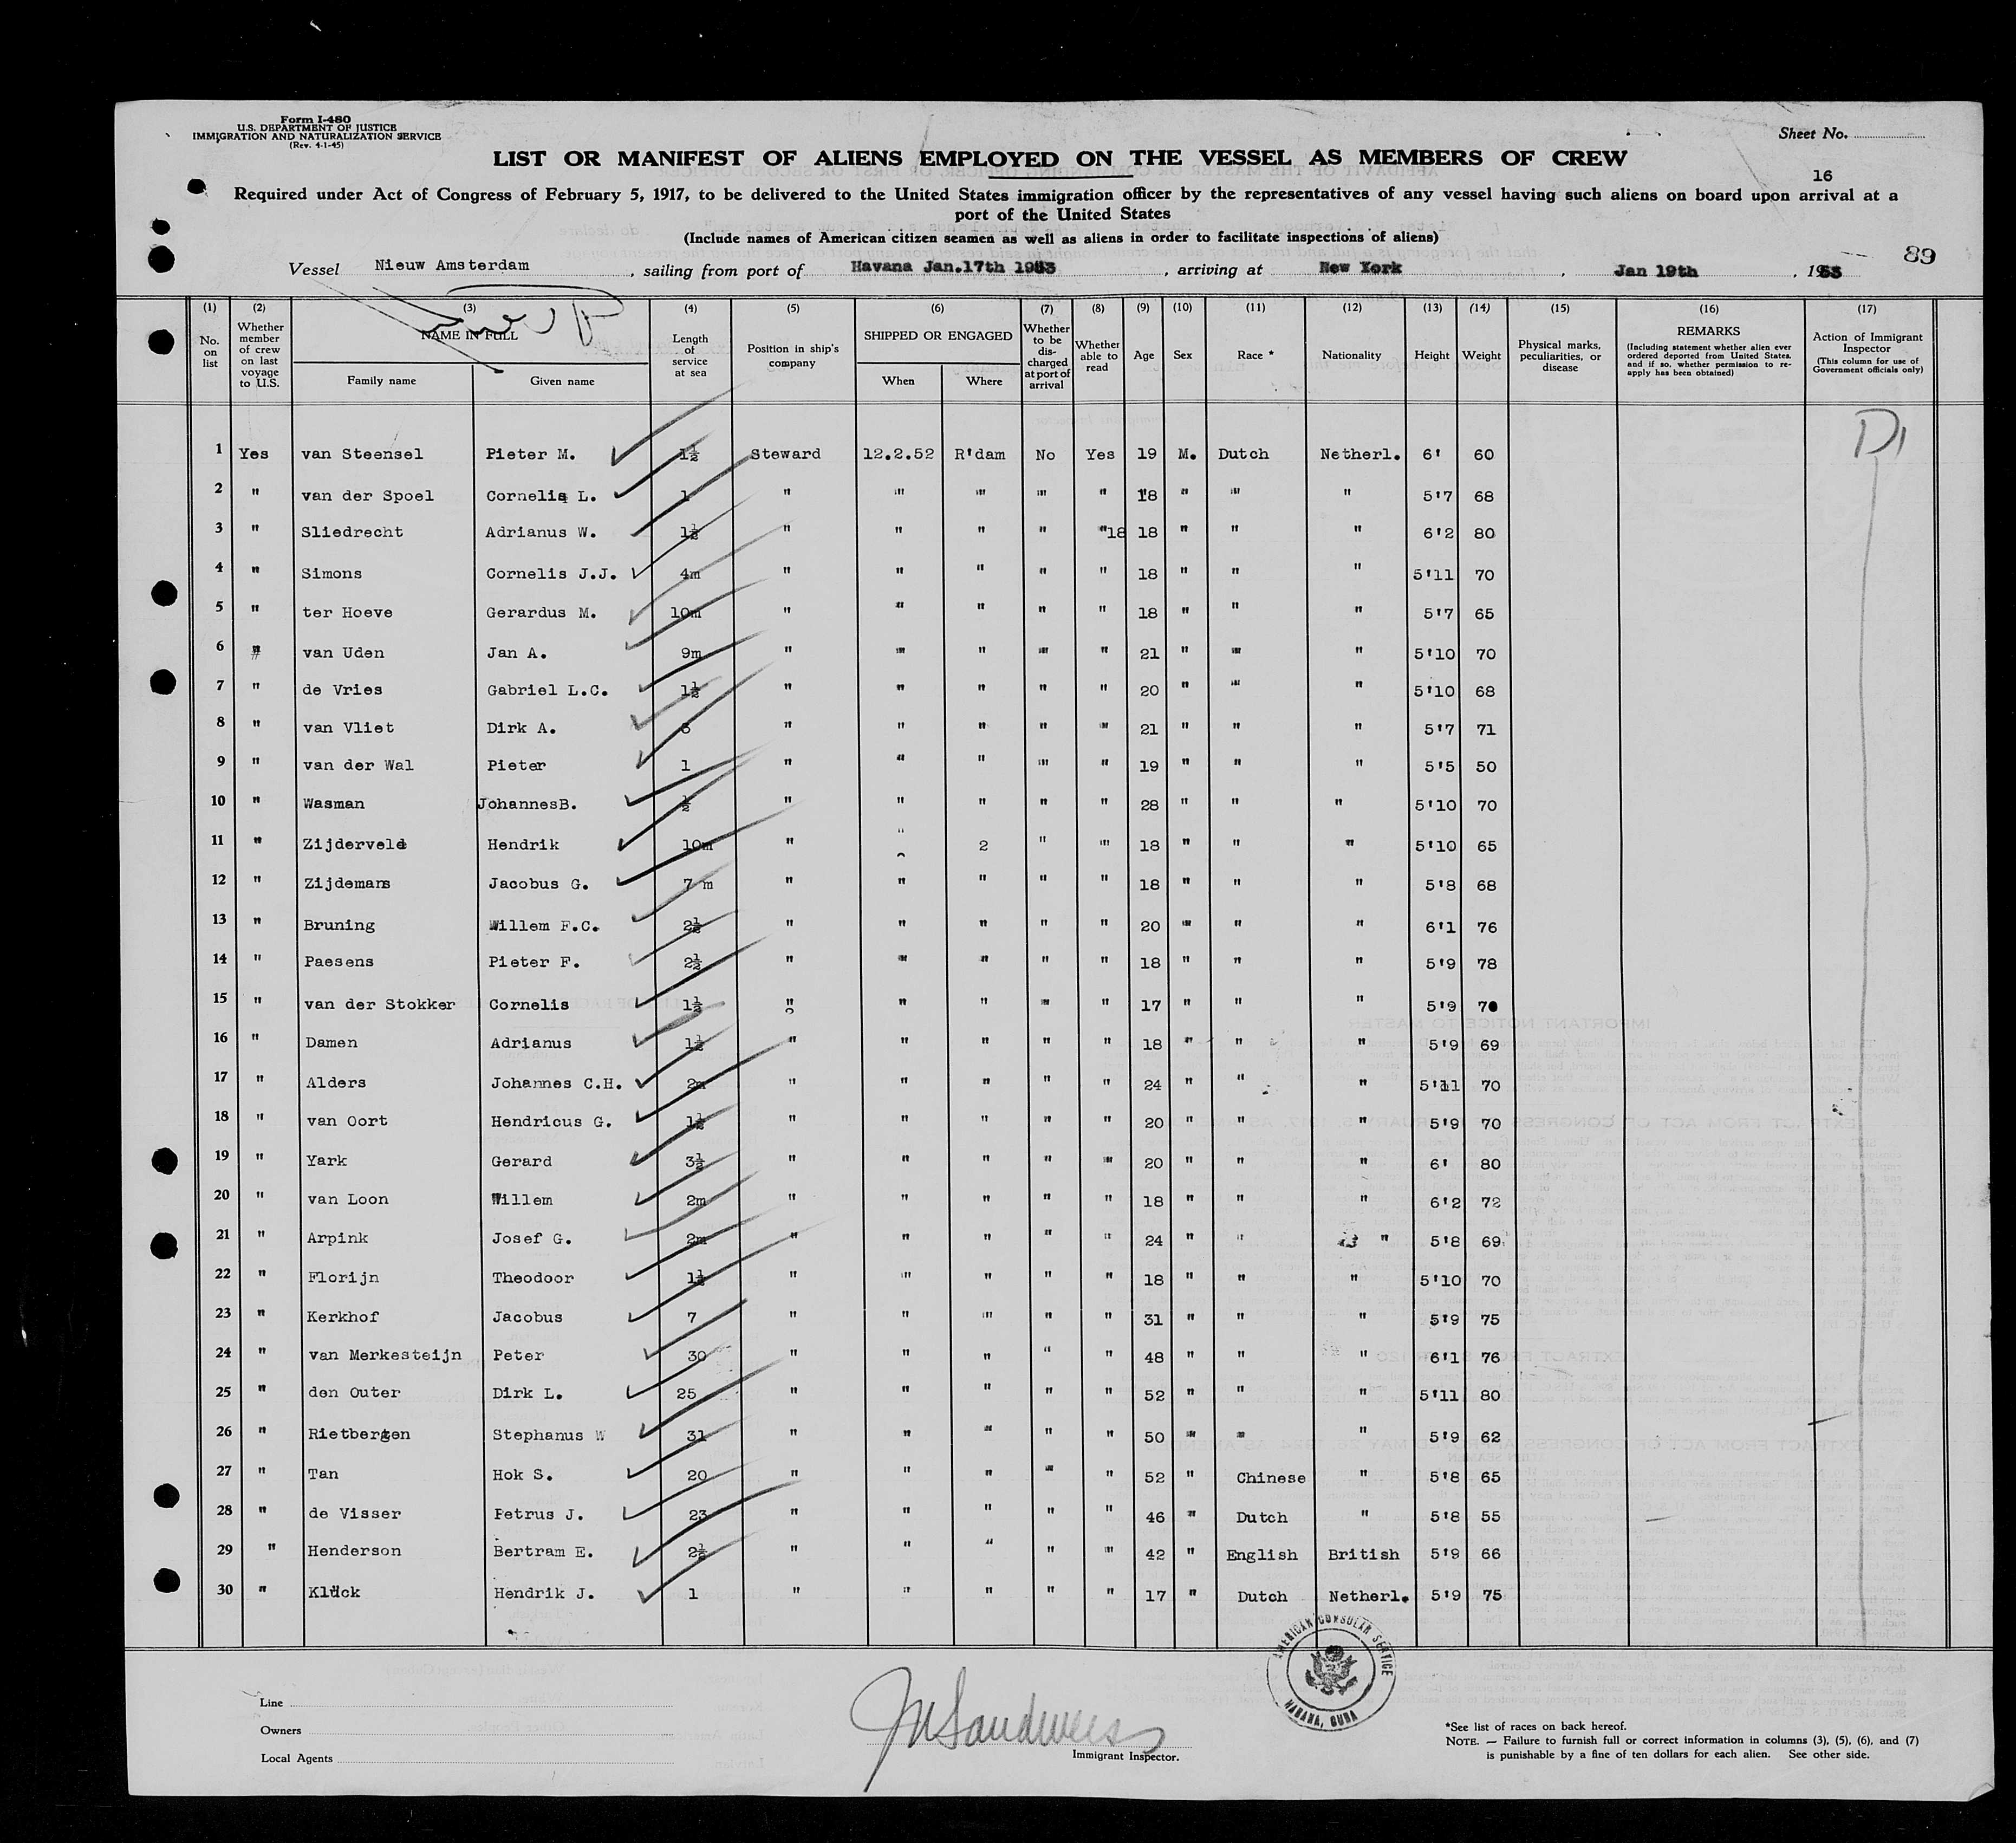 Form I-480
U.S. DEPARTMENT OF JUSTICE
IMMIGRATION AND NATURALIZATION SERVICE
(Rev. 4-1-45)
Sheet No.
LIST OR MANIFEST OF ALIENS EMPLOYED ON THE VESSEL AS MEMBERS OF CREW
16
Required under Act of Congress of February 5, 1917, to be delivered to the United States immigration officer by the representatives of any vessel having such aliens on board upon arrival at a
port of the United States
(Include names of American citizen seamen as well as aliens in order to facilitate inspections of aliens)
89
Vessel Nieuw Amsterdam, sailing from port of Havana Jan.17th 1953, arriving at New York, Jan 19th, 1953
(1) No. on list (2) Whether member of crew on last voyage to U.S. (3) NAME IN FULL Family name Given name (4) Length of service at sea (5) Position in ship's company (6) SHIPPED OR ENGAGED When Where (7) Whether to be discharged at port of arrival (8) Whether able to read (9) Age (10) Sex (11) Race * (12) Nationality (13) Height (14) Weight (15) Physical marks, peculiarities, or disease (16) REMARKS (Including statement whether alien ever ordered deported from United States, and if so, whether permission to re-apply has been obtained) (17) Action of Immigrant Inspector (This column for use of Government officials only)
1 Yes van Steensel Pieter M. 1½ Steward 12.2.52 R'dam No Yes 19 M. Dutch Netherl. 6' 60
2 " van der Spoel Cornelis L. 1 " " " " " 18 " " " 5'7 68
3 " Sliedrecht Adrianus W. 1½ " " " " "18 18 " " " 6'2 80
4 " Simons Cornelis J.J. 4m " " " " " 18 " " " 5'11 70
5 " ter Hoeve Gerardus M. 10m " " " " " 18 " " " 5'7 65
6 " van Uden Jan A. 9m " " " " " 21 " " " 5'10 70
7 " de Vries Gabriel L.C. 1½ " " " " " 20 " " " 5'10 68
8 " van Vliet Dirk A. " " " " " 21 " " " 5'7 71
9 " van der Wal Pieter 1 " " " " " 19 " " " 5'5 50
10 " Wasman JohannesB. ½ " " " " " 28 " " " 5'10 70
11 " Zijderveld Hendrik 10m " " 2 " " 18 " " " 5'10 65
12 " Zijdemans Jacobus G. 7 m " " " " " 18 " " " 5'8 68
13 " Bruning Willem F.C. 2½ " " " " " 20 " " " 6'1 76
14 " Paesens Pieter F. 2½ " " " " " 18 " " " 5'9 78
15 " van der Stokker Cornelis 1½ " " " " " 17 " " " 5'9 70
16 " Damen Adrianus 1½ " " " " " 18 " " " 5'9 69
17 " Alders Johannes C.H. 2m " " " " " 24 " " " 5'11 70
18 " van Oort Hendricus G. 1½ " " " " " 20 " " " 5'9 70
19 " Yark Gerard 3½ " " " " " 20 " " " 6' 80
20 " van Loon Willem 2m " " " " " 18 " " " 6'2 72
21 " Arpink Josef G. 2m " " " " " 24 " " " 5'8 69
22 " Florijn Theodoor 1½ " " " " " 18 " " " 5'10 70
23 " Kerkhof Jacobus 7 " " " " " 31 " " " 5'9 75
24 " van Merkesteijn Peter 30 " " " " " 48 " " " 6'1 76
25 " den Outer Dirk L. 25 " " " " " 52 " " " 5'11 80
26 " Rietbergen Stephanus W 31 " " " " " 50 " " " 5'9 62
27 " Tan Hok S. 20 " " " " " 52 " Chinese " 5'8 65
28 " de Visser Petrus J. 23 " " " " " 46 " Dutch " 5'8 55
29 " Henderson Bertram E. 2½ " " " " " 42 " English British 5'9 66
30 " Klück Hendrik J. 1 " " " " " 17 " Dutch Netherl. 5'9 75
AMERICAN CONSULAR SERVICE
HABANA, CUBA
Line
Owners
Local Agents
Immigrant Inspector.
*See list of races on back hereof.
NOTE. — Failure to furnish full or correct information in columns (3), (5), (6), and (7)
is punishable by a fine of ten dollars for each alien. See other side.